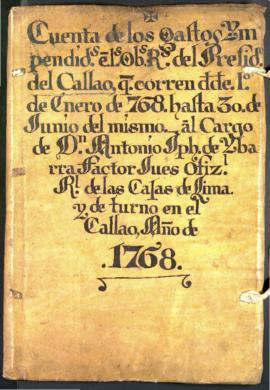 Cuenta de los Gastos Ym
pendid.s ẽ l.s Ob.s R.s del Presid.o
del Callao, q. corren dde. 1.o
de Enero de 768. hasta 30. de
Junio del mismo al Cargo
de D.n Antonio Jph. de Yba
rra Factor Jues Ofiz.l
R.l de las Casas de Lima.
y de turno en el
Callao, Año de
.1768.